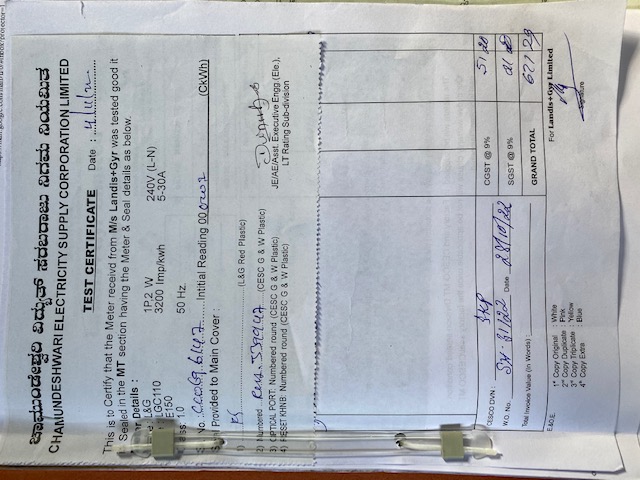 ಚಾಮುಂಡೇಶ್ವರಿ ವಿದ್ಯುತ್ ಸರಬರಾಜು ನಿಗಮ ನಿಯಮಿತ
CHAMUNDESHWARI ELECTRICITY SUPPLY CORPORATION LIMITED
TEST CERTIFICATE
Date :
This is to Certify that the Meter receivd from M/s Landis+Gyr was tested good it
Sealed in the MT section having the Meter & Seal details as below.
Details :
L&G 1P.2 W 240V (L-N)
LGC110 3200 Imp/kwh 5-30A
E150
50 Hz.
Intitial Reading 00 (CkWh)
Provided to Main Cover :
1) (L&G Red Plastic)
2) Numbered (CESC G & W Plastic)
3) OPTICAL PORT: Numbered round (CESC G & W Plastic)
4) RESET KHNB: Numbered round (CESC G & W Plastic)
JE/AE/Asst. Executive Engg.(Ele.),
LT Rating Sub-division
CESCO DVN :
W.O. No. Date 28/10/22
Total Invoice Value (in Words) :
CGST @ 9%
SGST @ 9%
GRAND TOTAL
E.&O.E.
For Landis+Gyr Limited
Signature
1st Copy Original : White
2nd Copy Duplicate : Pink
3rd Copy Triplicate : Yellow
4th Copy Extra : Blue